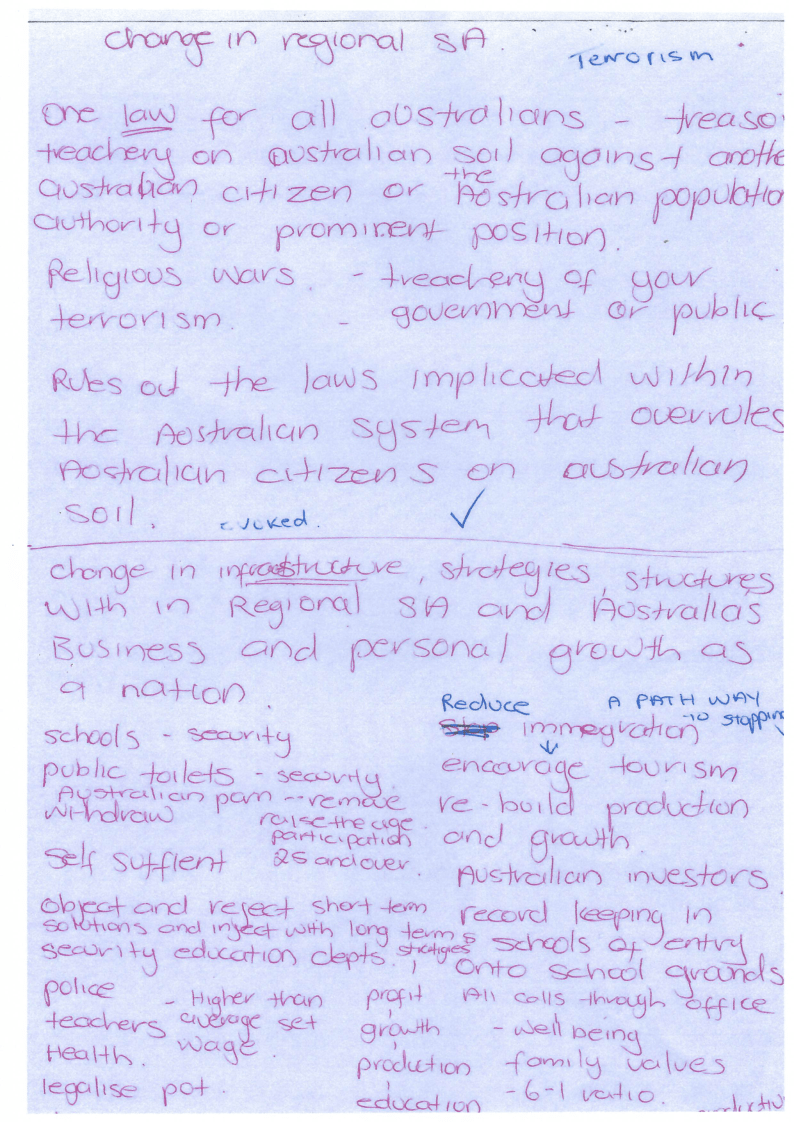 change in regional SA.
Terrorism
One law for all australians - treaso
treachery on australian soil against anothe
australian citizen or the Australian populatio
authority or prominent position.
Religious wars. - treachery of your
terrorism. - government or public
Rules out the laws implicated within
the Australian system that overrules
Australian citizens on australian
soil.
✓
change in infrastructure, strategies, structures
with in Regional SA and Australias
Business and personal growth as
a nation.
schools - security
public toilets - security.
Australian porn -- remove
withdraw
raise the age
participation
25 and over.
self suffient
Object and reject short term
solutions and inject with long terms
stratigies
security education depts.
police
teachers
Health.
- Higher than
average set
wage.
legalise pot.
Reduce
A PATH WAY
TO stoppin
immegration
↓
encourage tourism
re-build production
and growth.
Australian investors
record keeping in
schools of entry
onto school grounds
All calls through office
profit
growth
↓
production
↓
education
- well being
family values
- 6-1 ratio.